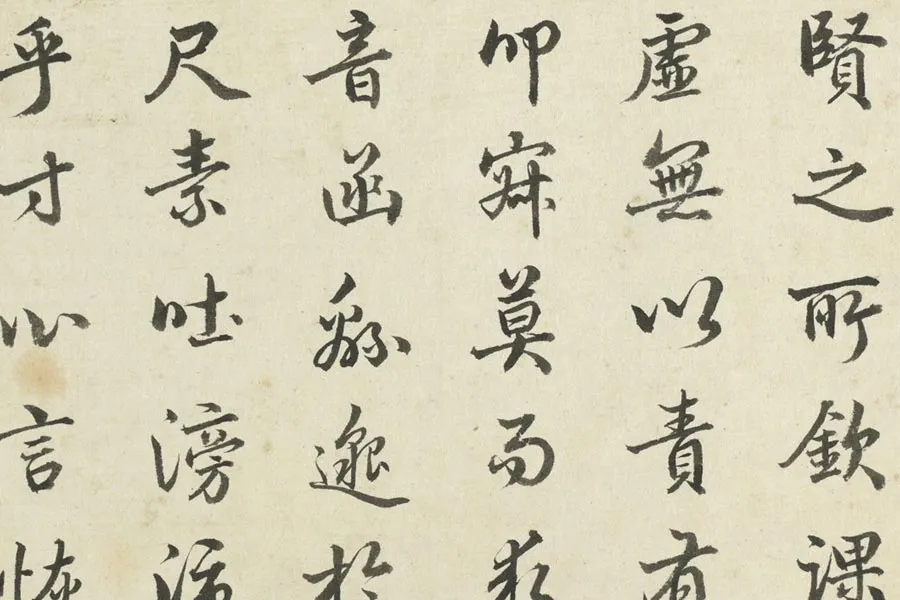 賢之所欽課
虛無以責有
叩寂莫而求
音函緜邈於
尺素吐滂沛
乎寸心言恢